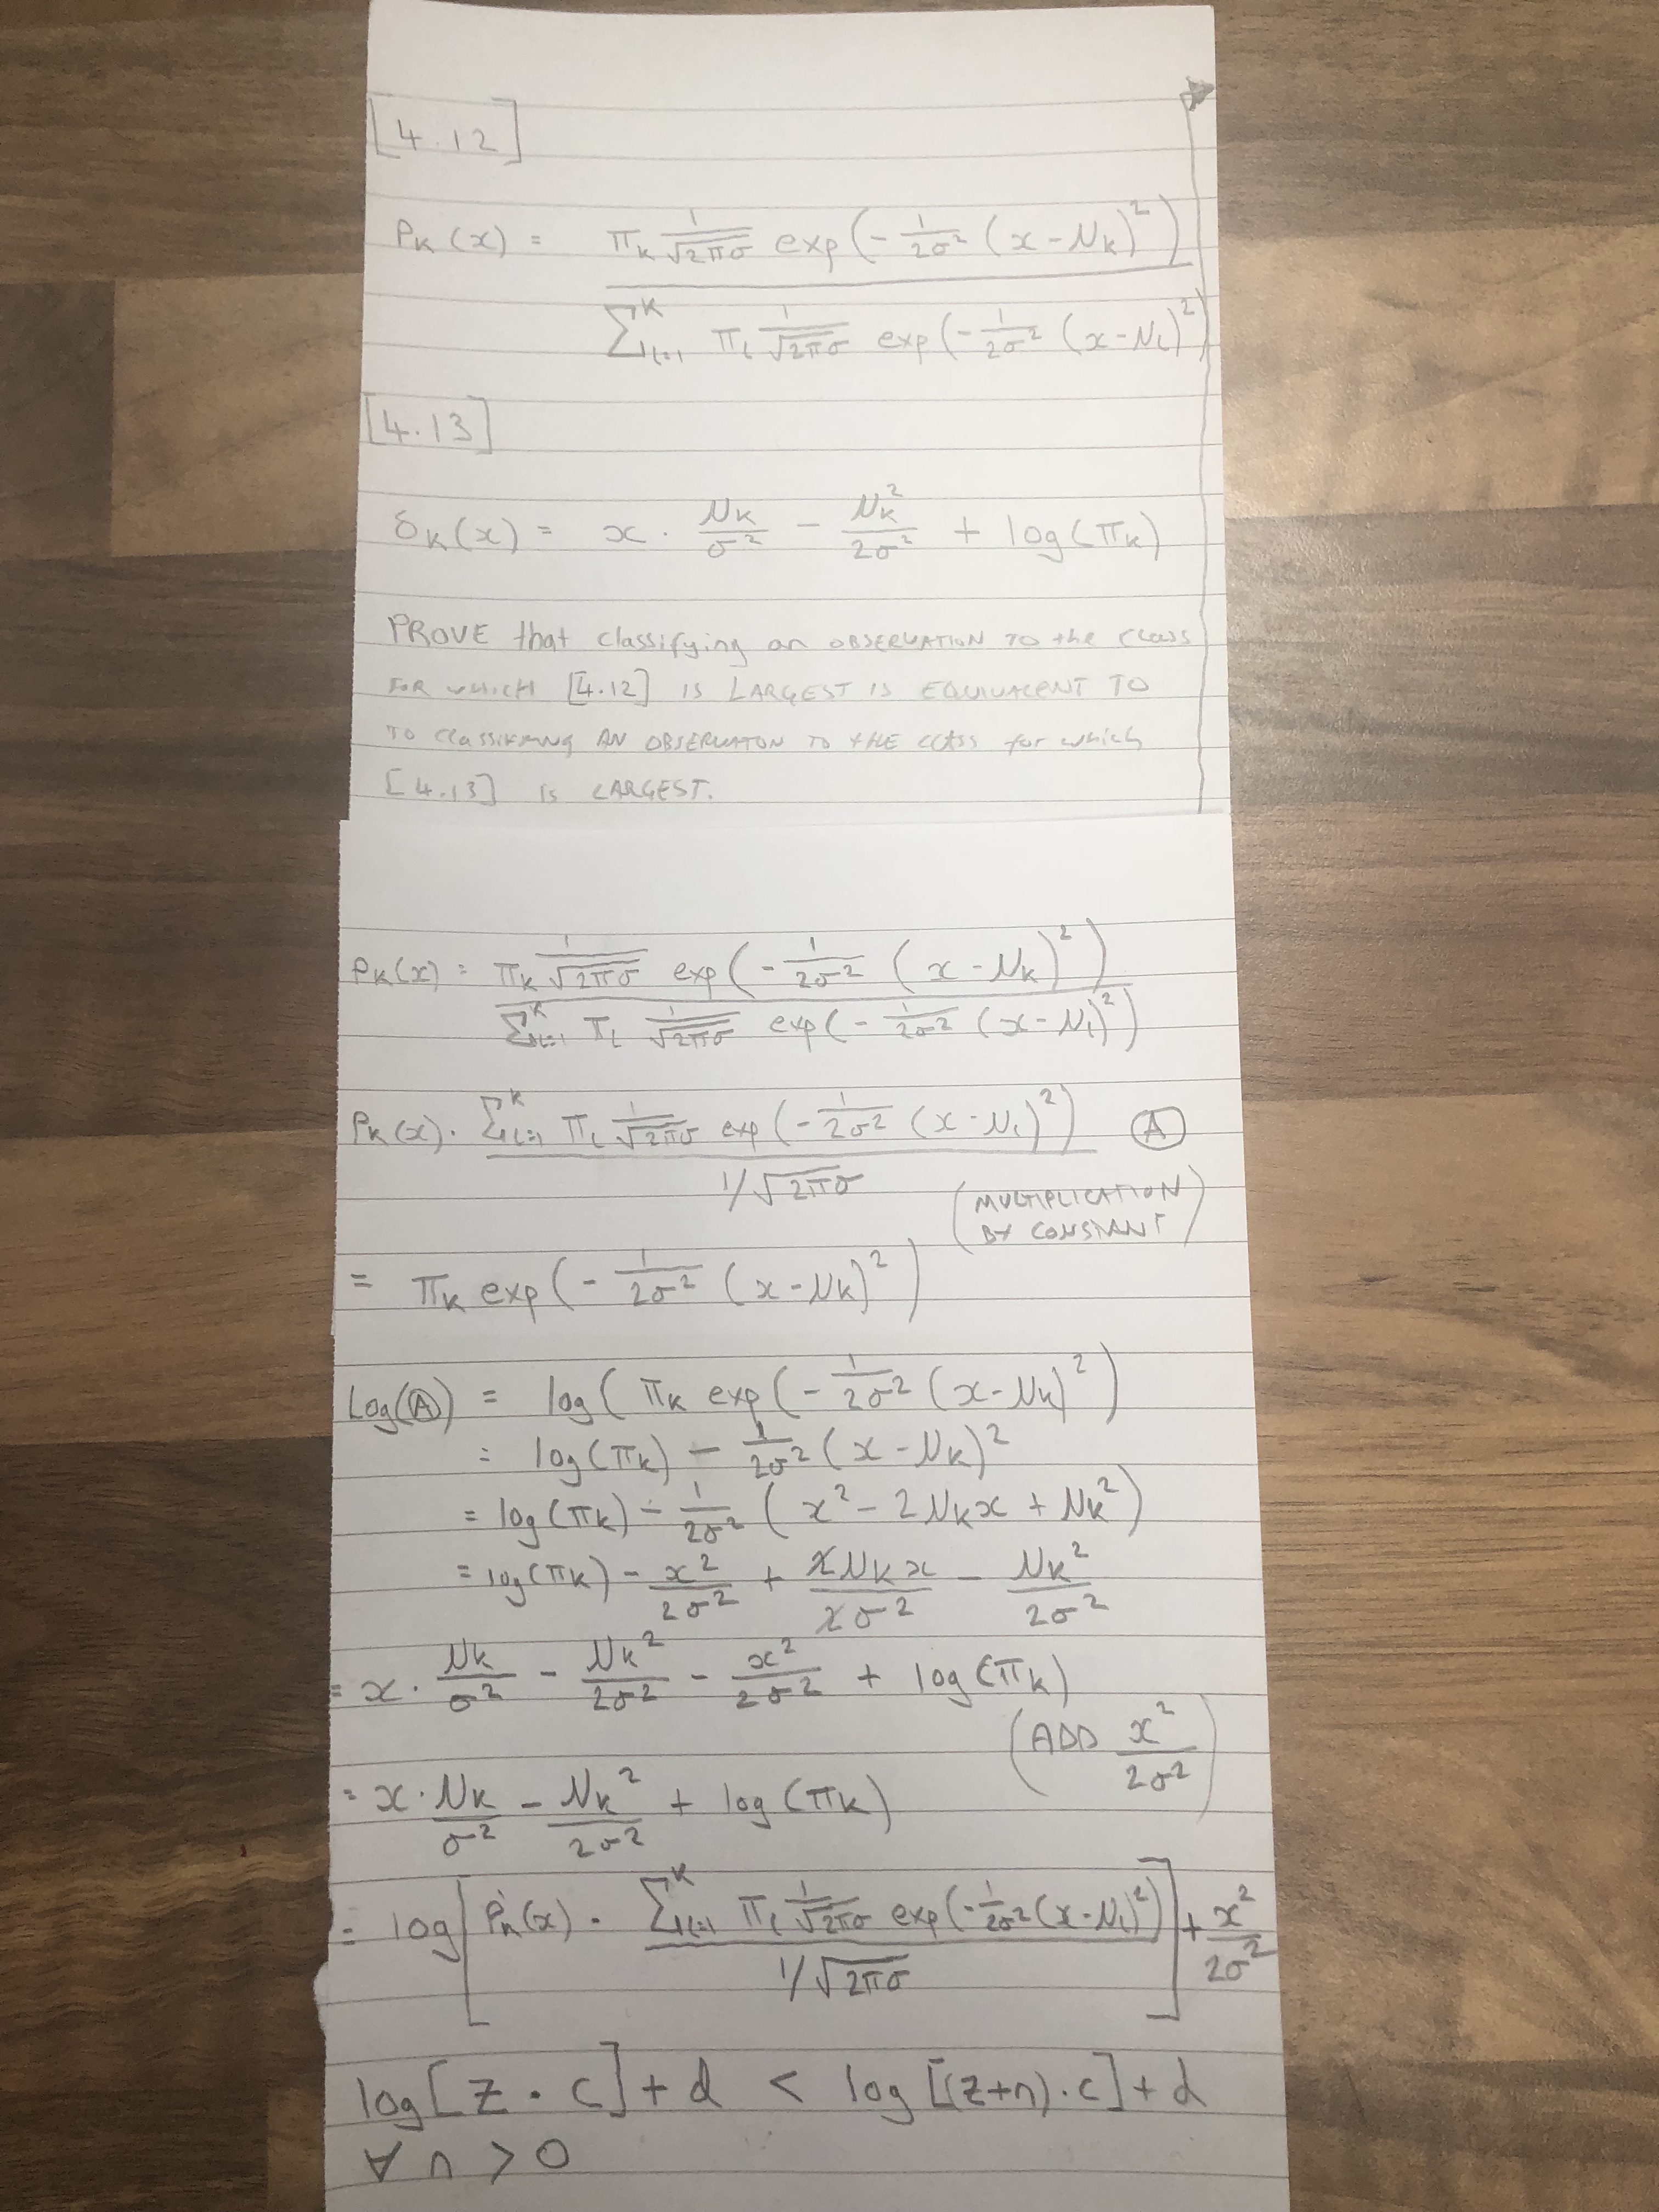 [4.12]
P_K(x) = π_K 1/√(2πσ) exp(-1/2σ² (x-μ_K)²) / Σ^K_{l=1} π_l 1/√(2πσ) exp(-1/2σ² (x-μ_l)²)
[4.13]
δ_K(x) = x · μ_K/σ² - μ_K²/2σ² + log(π_K)
PROVE that classifying an OBSERVATION TO the CLASS
FOR WHICH [4.12] IS LARGEST IS EQUIVALENT TO
TO CLASSIFYING AN OBSERVATION TO THE CLASS for which
[4.13] IS LARGEST.
P_K(x) = π_K 1/√(2πσ) exp(-1/2σ² (x-μ_K)²) / Σ^K_{l=1} π_l 1/√(2πσ) exp(-1/2σ² (x-μ_l)²)
P_K(x) · Σ^K_{l=1} π_l 1/√(2πσ) exp(-1/2σ² (x-μ_l)²) / 1/√(2πσ) Ⓐ
(MULTIPLICATION
BY CONSTANT)
= π_K exp(-1/2σ² (x-μ_K)²)
Log(Ⓐ) = log(π_K exp(-1/2σ² (x-μ_K)²)
= log(π_K) - 1/2σ² (x-μ_K)²
= log(π_K) - 1/2σ² (x² - 2μ_K x + μ_K²)
= log(π_K) - x²/2σ² + 2μ_K x/2σ² - μ_K²/2σ²
= x · μ_K/σ² - μ_K²/2σ² - x²/2σ² + log(π_K)
(ADD x²/2σ²)
= x · μ_K/σ² - μ_K²/2σ² + log(π_K)
= log[P_K(x) · Σ^K_{l=1} π_l 1/√(2πσ) exp(-1/2σ² (x-μ_l)²) / 1/√(2πσ)] + x²/2σ²
log[z · c] + d < log[(z+n) · c] + d
∀ n > 0